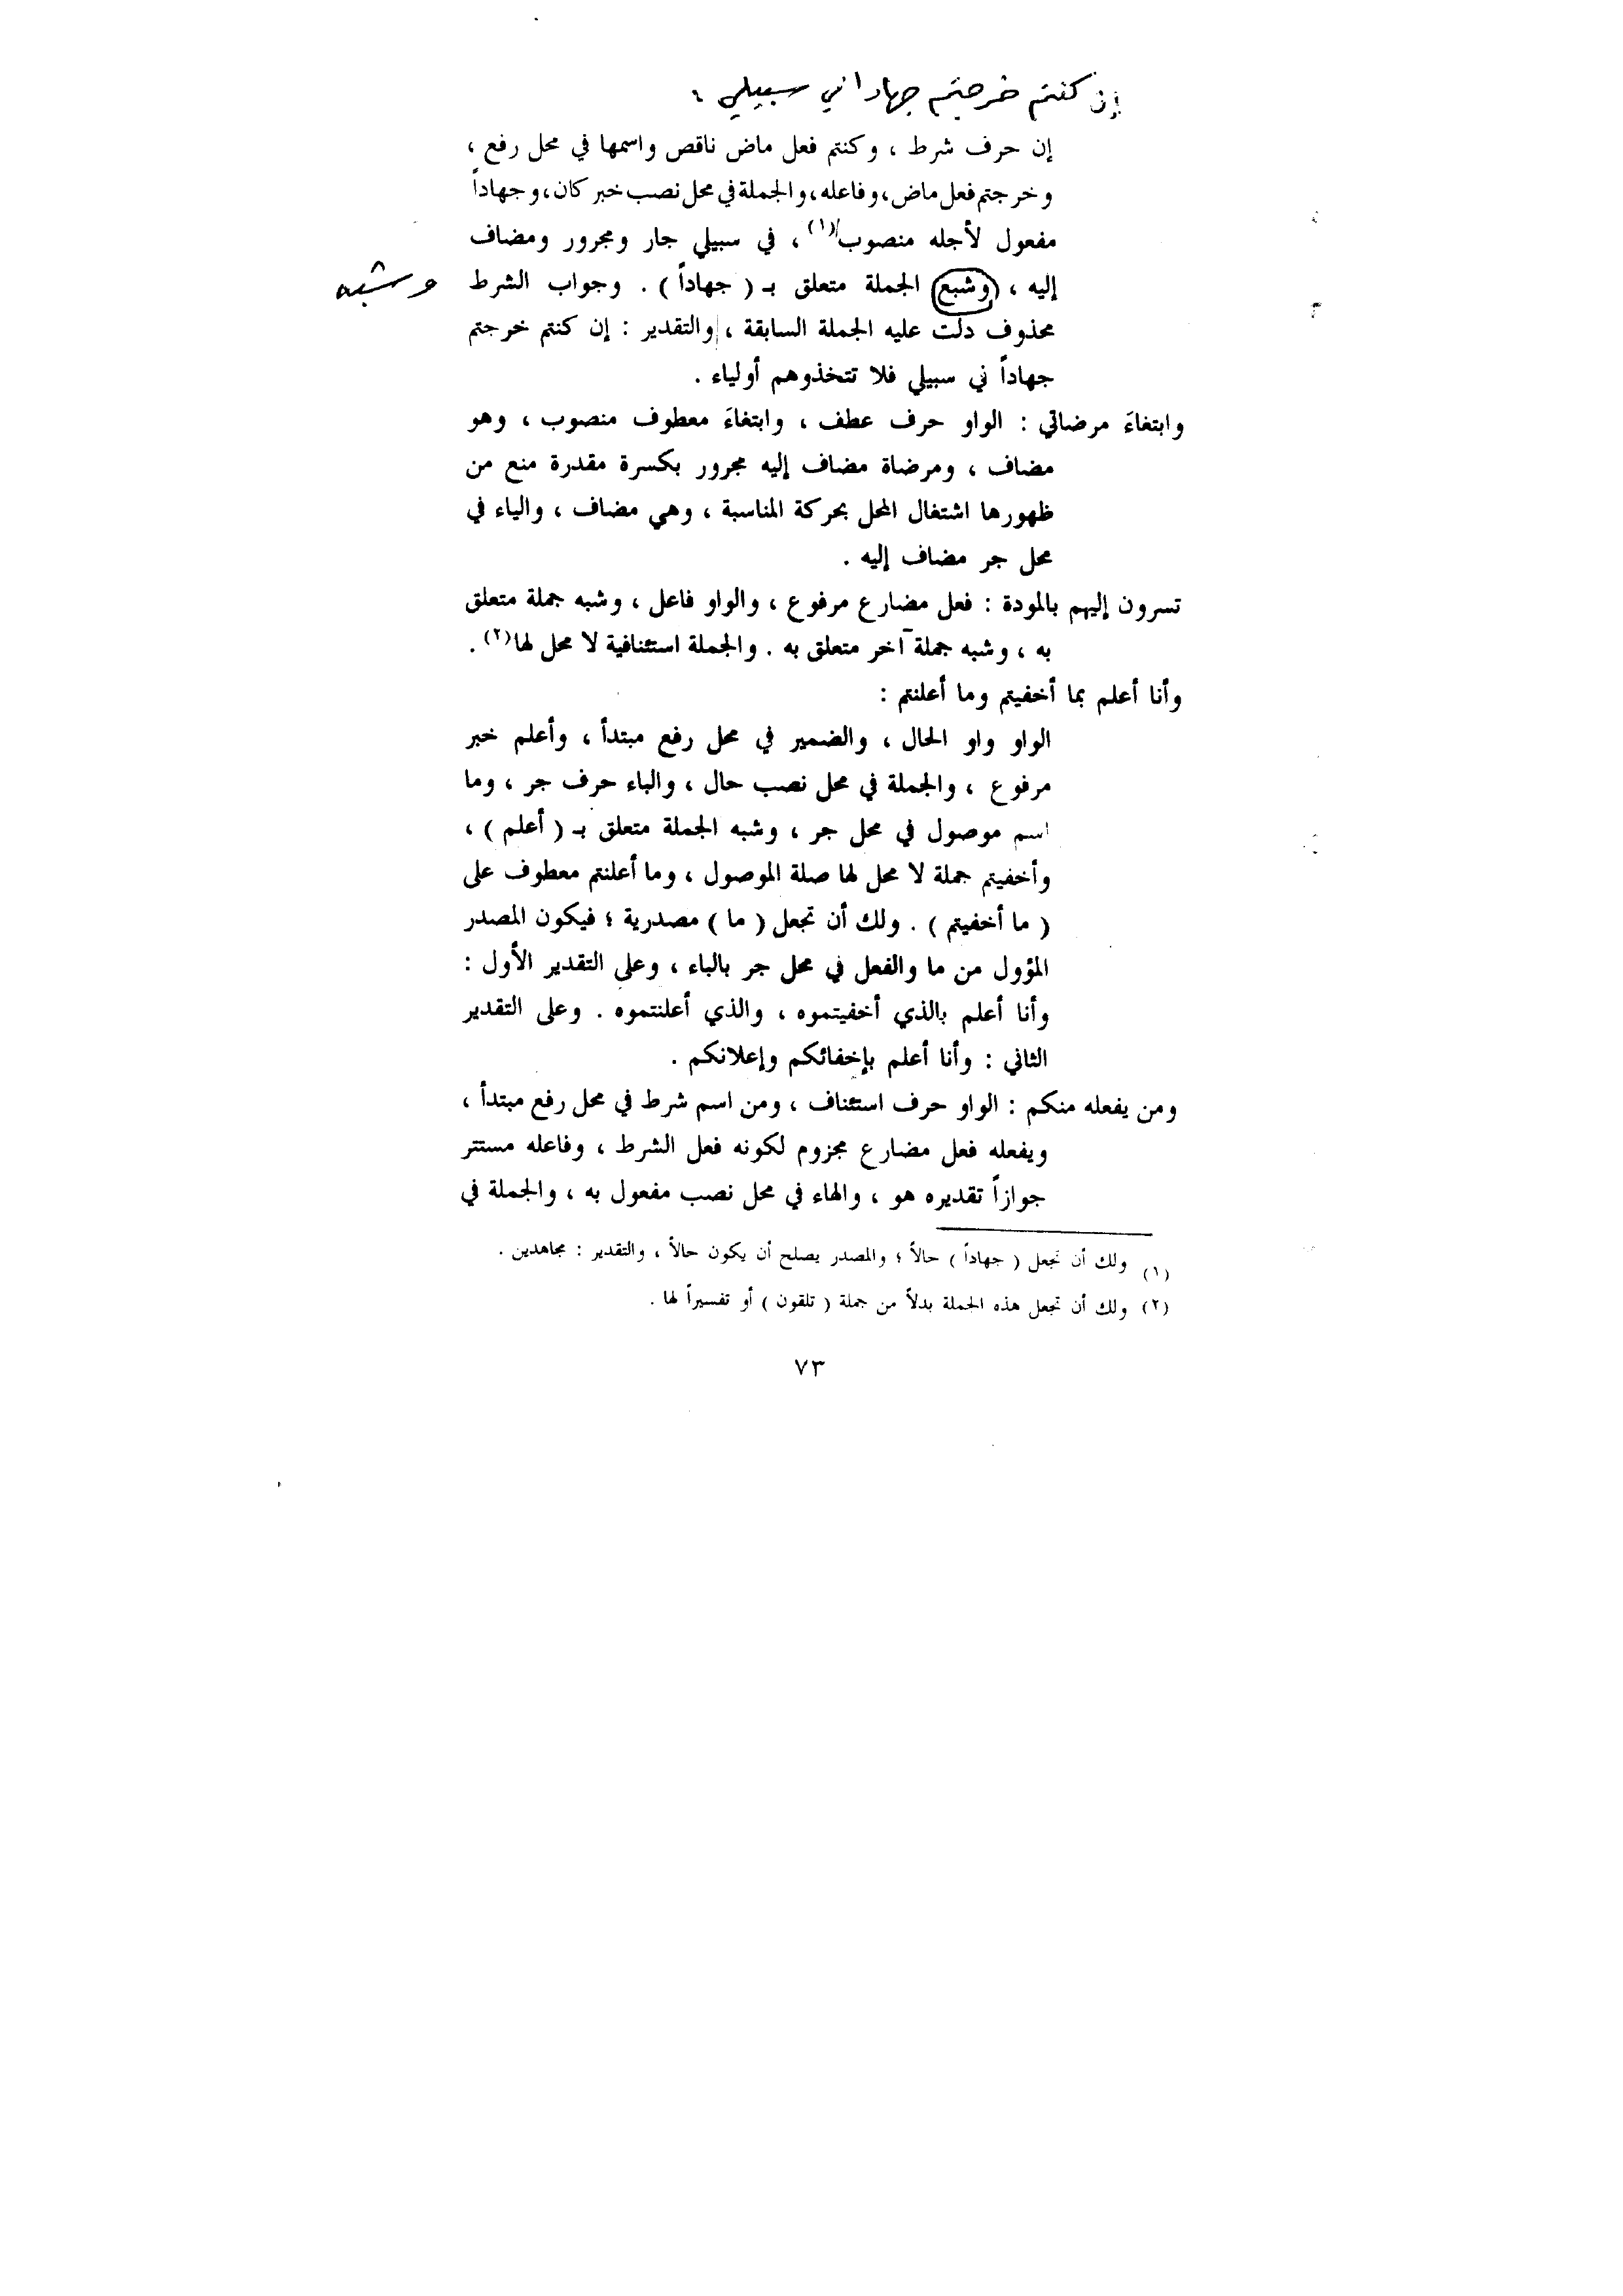 إن كنتم خرجتم جهادا في سبيلي :
إن حرف شرط ، وكنتم فعل ماض ناقص واسمها في محل رفع ،
وخرجتم فعل ماض، وفاعله، والجملة في محل نصب خبر كان، وجهاداً
مفعول لأجله منصوب(١) ، في سبيلي جار ومجرور ومضاف
إليه ، وشبع الجملة متعلق بـ ( جهاداً ) . وجواب الشرط
وشبه
محذوف دلت عليه الجملة السابقة ، والتقدير : إن كنتم خرجتم
جهاداً في سبيلي فلا تتخذوهم أولياء .
وابتغاءَ مرضاتي : الواو حرف عطف ، وابتغاءَ معطوف منصوب ، وهو
مضاف ، ومرضاة مضاف إليه مجرور بكسرة مقدرة منع من
ظهورها اشتغال المحل بحركة المناسبة ، وهي مضاف ، والياء في
محل جر مضاف إليه .
تسرون إليهم بالمودة : فعل مضارع مرفوع ، والواو فاعل ، وشبه جملة متعلق
به ، وشبه جملة آخر متعلق به . والجملة استئنافية لا محل لها(٢) .
وأنا أعلم بما أخفيتم وما أعلنتم :
الواو واو الحال ، والضمير في محل رفع مبتدأ ، وأعلم خبر
مرفوع ، والجملة في محل نصب حال ، والباء حرف جر ، وما
اسم موصول في محل جر ، وشبه الجملة متعلق بـ ( أعلم ) ،
وأخفيتم جملة لا محل لها صلة الموصول ، وما أعلنتم معطوف على
( ما أخفيتم ) . ولك أن تجعل ( ما ) مصدرية ؛ فيكون المصدر
المؤول من ما والفعل في محل جر بالباء ، وعلى التقدير الأول :
وأنا أعلم بالذي أخفيتموه ، والذي أعلنتموه . وعلى التقدير
الثاني : وأنا أعلم بإخفائكم وإعلانكم .
ومن يفعله منكم : الواو حرف استئناف ، ومن اسم شرط في محل رفع مبتدأ ،
ويفعله فعل مضارع مجزوم لكونه فعل الشرط ، وفاعله مستتر
جوازاً تقديره هو ، والهاء في محل نصب مفعول به ، والجملة في
(١) ولك أن تجعل ( جهاداً ) حالاً ؛ والمصدر يصلح أن يكون حالاً ، والتقدير : مجاهدين .
(٢) ولك أن تجعل هذه الجملة بدلاً من جملة ( تلقون ) أو تفسيراً لها .
٧٣